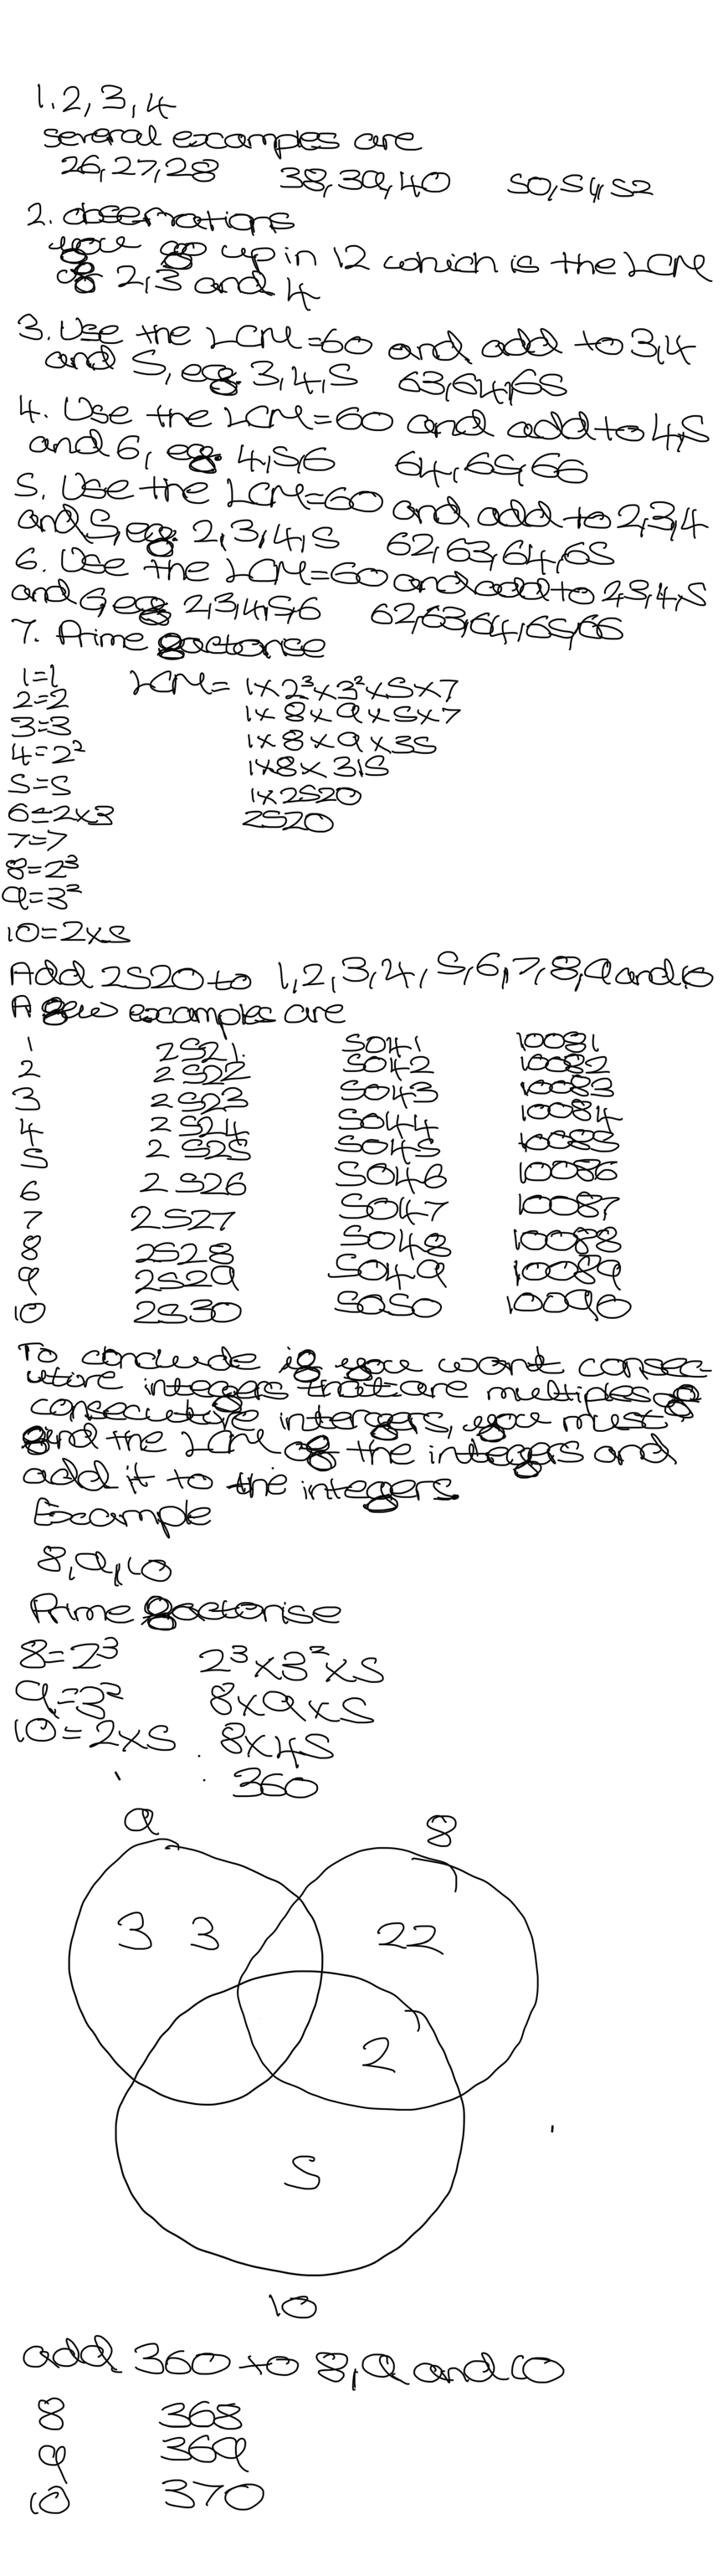 1.2,3,4
several examples are
26,27,28 38,39,40 50,51,52
2. observations
you go up in 12 which is the LCM
of 2,3 and 4
3. Use the LCM=60 and add to 3,4
and 5, eg. 3,4,5 63,64,65
4. Use the LCM=60 and add to 4,5
and 6, eg. 4,5,6 64,65,66
5. Use the LCM=60 and add to 2,3,4
and 5, eg. 2,3,4,5 62,63,64,65
6. Use the LCM=60 and add to 2,3,4,5
and 6 eg 2,3,4,5,6 62,63,64,65,66
7. Prime factorise
1=1 LCM= 1x2³x3²x5x7
2=2 1x8x9x5x7
3=3 1x8x9x35
4=2² 1x8x315
5=5 1x2520
6=2x3 2520
7=7
8=2³
9=3²
10=2x5
Add 2520 to 1,2,3,4,5,6,7,8,9 and 10
A few examples are
1 2521. 5041 10081
2 2522 5042 10082
3 2523 5043 10083
4 2524 5044 10084
5 2525 5045 10085
6 2526 5046 10086
7 2527 5047 10087
8 2528 5048 10088
9 2529 5049 10089
10 2530 5050 10090
To conclude if you want consec
utive integers that are multiples of
consecutive intergers, you must
find the LCM of the integers and
add it to the integers.
Example
8,9,10
Prime factorise
8=2³ 2³x3²x5
9=3² 8x9x5
10=2x5 8x45
360
9 8
3 3 22
2
5
10
add 360 to 8,9 and 10
8 368
9 369
10 370